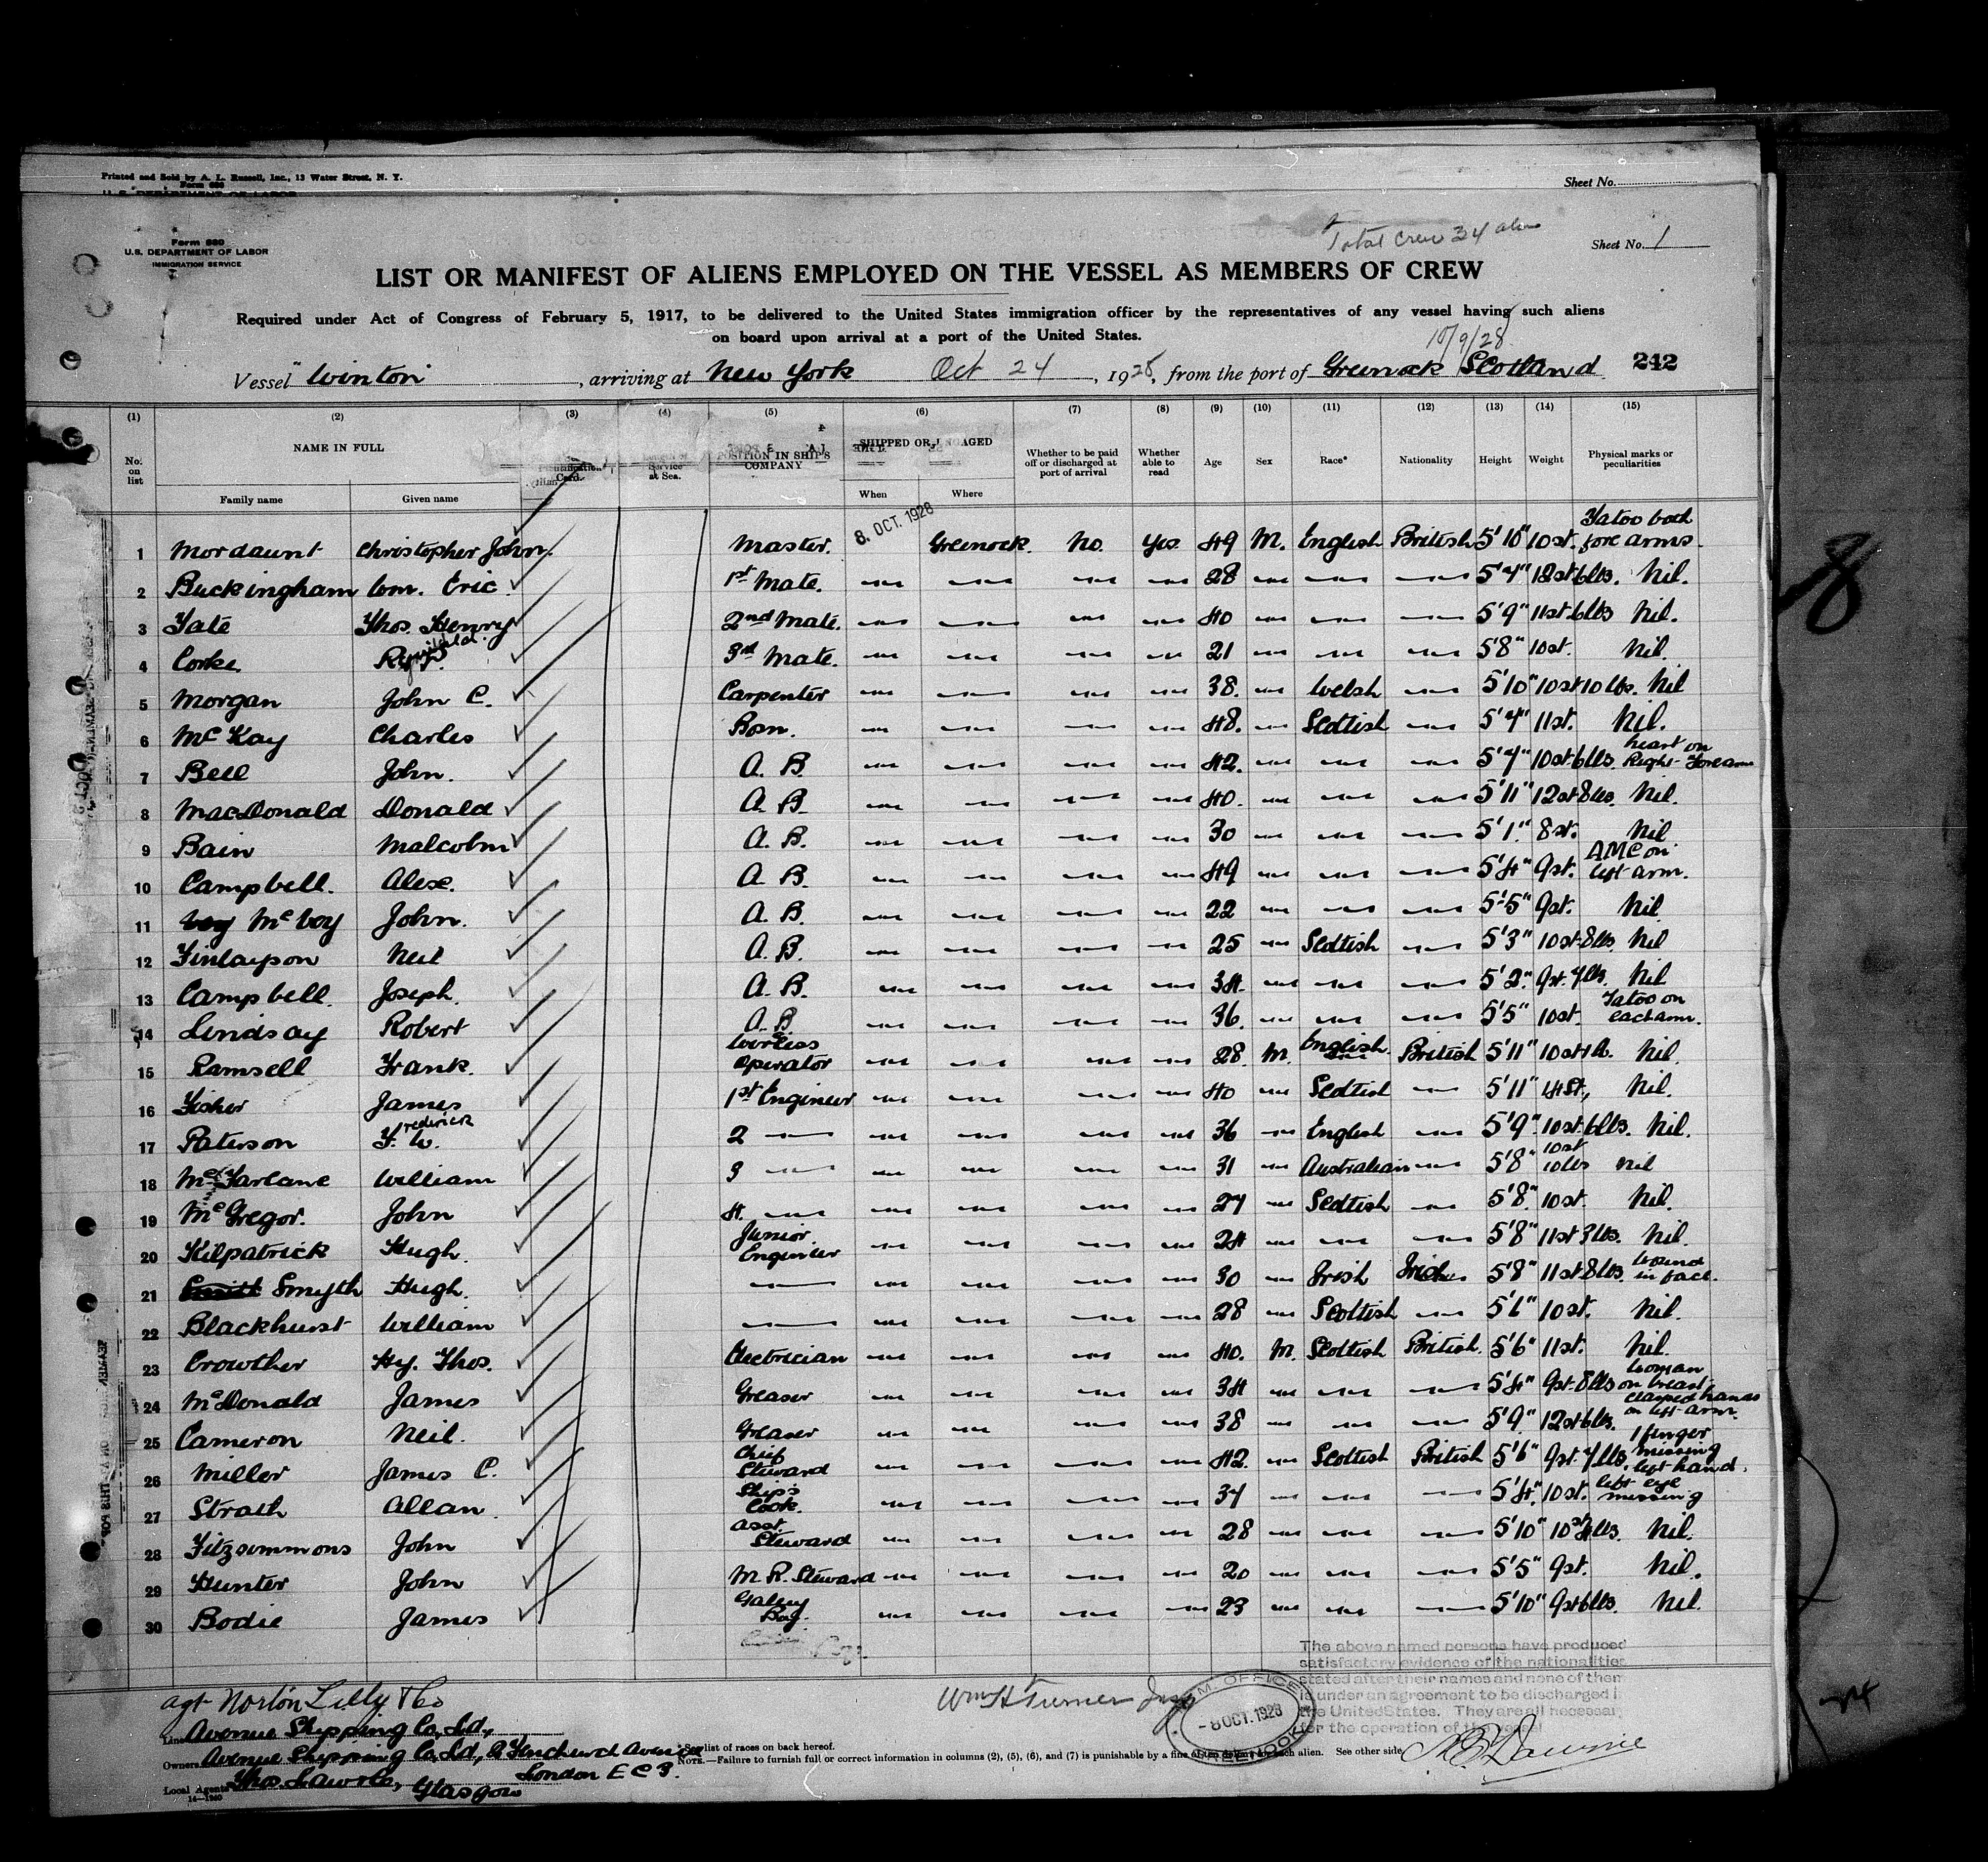 Printed and Sold by A. L. Russell, Inc., 13 Water Street, N. Y.
Form 680
U. S. DEPARTMENT OF LABOR
Sheet No.
Form 680
U.S. DEPARTMENT OF LABOR
IMMIGRATION SERVICE
Total Crew 34
Sheet No. 1
LIST OR MANIFEST OF ALIENS EMPLOYED ON THE VESSEL AS MEMBERS OF CREW
Required under Act of Congress of February 5, 1917, to be delivered to the United States immigration officer by the representatives of any vessel having such aliens
on board upon arrival at a port of the United States.
10/9/28
Vessel "Winton", arriving at New York Oct 24, 1928, from the port of Greenock Scotland 242
(1) (2) (3) (4) (5) (6) (7) (8) (9) (10) (11) (12) (13) (14) (15)
No. on list NAME IN FULL Family name Given name Service at Sea. POSITION IN SHIP'S COMPANY SHIPPED OR ENGAGED When Where Whether to be paid off or discharged at port of arrival Whether able to read Age Sex Race* Nationality Height Weight Physical marks or peculiarities
1 Mordaunt Christopher John. Master. 8. OCT. 1928 Greenock. No. Yes. 49 M. English British 5'10" 10st. Tatoo both fore arms.
2 Buckingham Wm. Eric 1st Mate. — — — — 28 — — — 5'4" 12st 6lbs. Nil.
3 Tate Thos. Henry 2nd Mate. — — — — 40 — — — 5'9" 11st 6lbs Nil.
4 Corke Reginald. 3rd Mate. — — — — 21 — — — 5'8" 10st. Nil.
5 Morgan John C. Carpenter — — — — 38. — Welsh — 5'10" 10st 10lbs. Nil
6 McKay Charles Bosn. — — — — 48. — Scottish — 5'4" 11st. Nil.
7 Bell John. A. B. — — — — 42. — — — 5'4" 10st. 6lbs. heart on Right Forearm
8 MacDonald Donald A. B. — — — — 40. — — — 5'11" 12st 8lbs. Nil.
9 Bain Malcolm A. B. — — — — 30 — — — 5'1" 8st. Nil
10 Campbell. Alex. A. B. — — — — 49 — — — 5'4" 9st. AMC on left arm.
11 McVoy John. A. B. — — — — 22 — — — 5'5" 9st. Nil.
12 Finlayson Neil A. B. — — — — 25 — Scottish — 5'3" 10st. 8lbs. Nil
13 Campbell. Joseph. A. B. — — — — 34. — — — 5'2" 9st. 7lbs. Nil
14 Lindsay Robert A. B. — — — — 36. — — — 5'5" 10st. Tatoo on each arm.
15 Ramsell Frank. Wireless Operator — — — — 28. M. English. British 5'11" 10st 1lb. Nil.
16 Fisher James 1st Engineer — — — — 40 — Scottish — 5'11" 14st. Nil.
17 Paterson Frederick W. 2 — — — — — 36 — English — 5'9" 10st. 6lbs. Nil.
18 McFarlane William 3 — — — — — 31 — Australian — 5'8" 10st 10lbs Nil
19 McGregor. John 4. — — — — — 27 — Scottish — 5'8" 10st. Nil.
20 Kilpatrick Hugh. Junior Engineer — — — — 24 — — — 5'8" 11st 3lbs. Nil.
21 Smith Smyth Hugh. — — — — — 30 — Irish Irish 5'8" 11st 8lbs. Wound in face.
22 Blackhurst William — — — — — 28 — Scottish — 5'6" 10st. Nil.
23 Crowther Hy. Thos. Electrician — — — — 40. M. Scottish British. 5'6" 11st. Nil.
24 McDonald James Greaser — — — — 34 — — — 5'4" 9st. 8lbs Woman on breast clasped hands on left arm.
25 Cameron Neil. Greaser — — — — 38 — — — 5'9" 12st 6lbs.
26 Miller James C. Chief Steward — — — — 42. — Scottish British 5'6" 9st. 7lbs. 1 finger missing left hand.
27 Strath Allan Ship's Cook. — — — — 34 — — — 5'4" 10st. left eye missing
28 Fitzsimmons John asst. Steward — — — — 28 — — — 5'10" Nil.
29 Hunter John M. R. Steward — — — — 20 — — — 5'5" 9st. Nil.
30 Bodie James Galley Boy. — — — — 23 — — — 5'10" 9st 6lbs. Nil.
The above named persons have produced
satisfactory evidence of the nationalities
stated after their names and none of them
is under an agreement to be discharged in
the United States. They are all necessary
for the operation of the vessel
agt Norton Lilly & Co
Wm H Turner Insp
IMM. OFFICE
- 8 OCT. 1928
GREENOCK
Line Avenue Shipping Co, Ld,
Owners Avenue Shipping Co, Ld, 2 Fenchurch Avenue
London E C 3.
Local Agents Thos. Law & Co, Glasgow
14—1240
* See list of races on back hereof.
NOTE.—Failure to furnish full or correct information in columns (2), (5), (6), and (7) is punishable by a fine of ten dollars for each alien. See other side
8